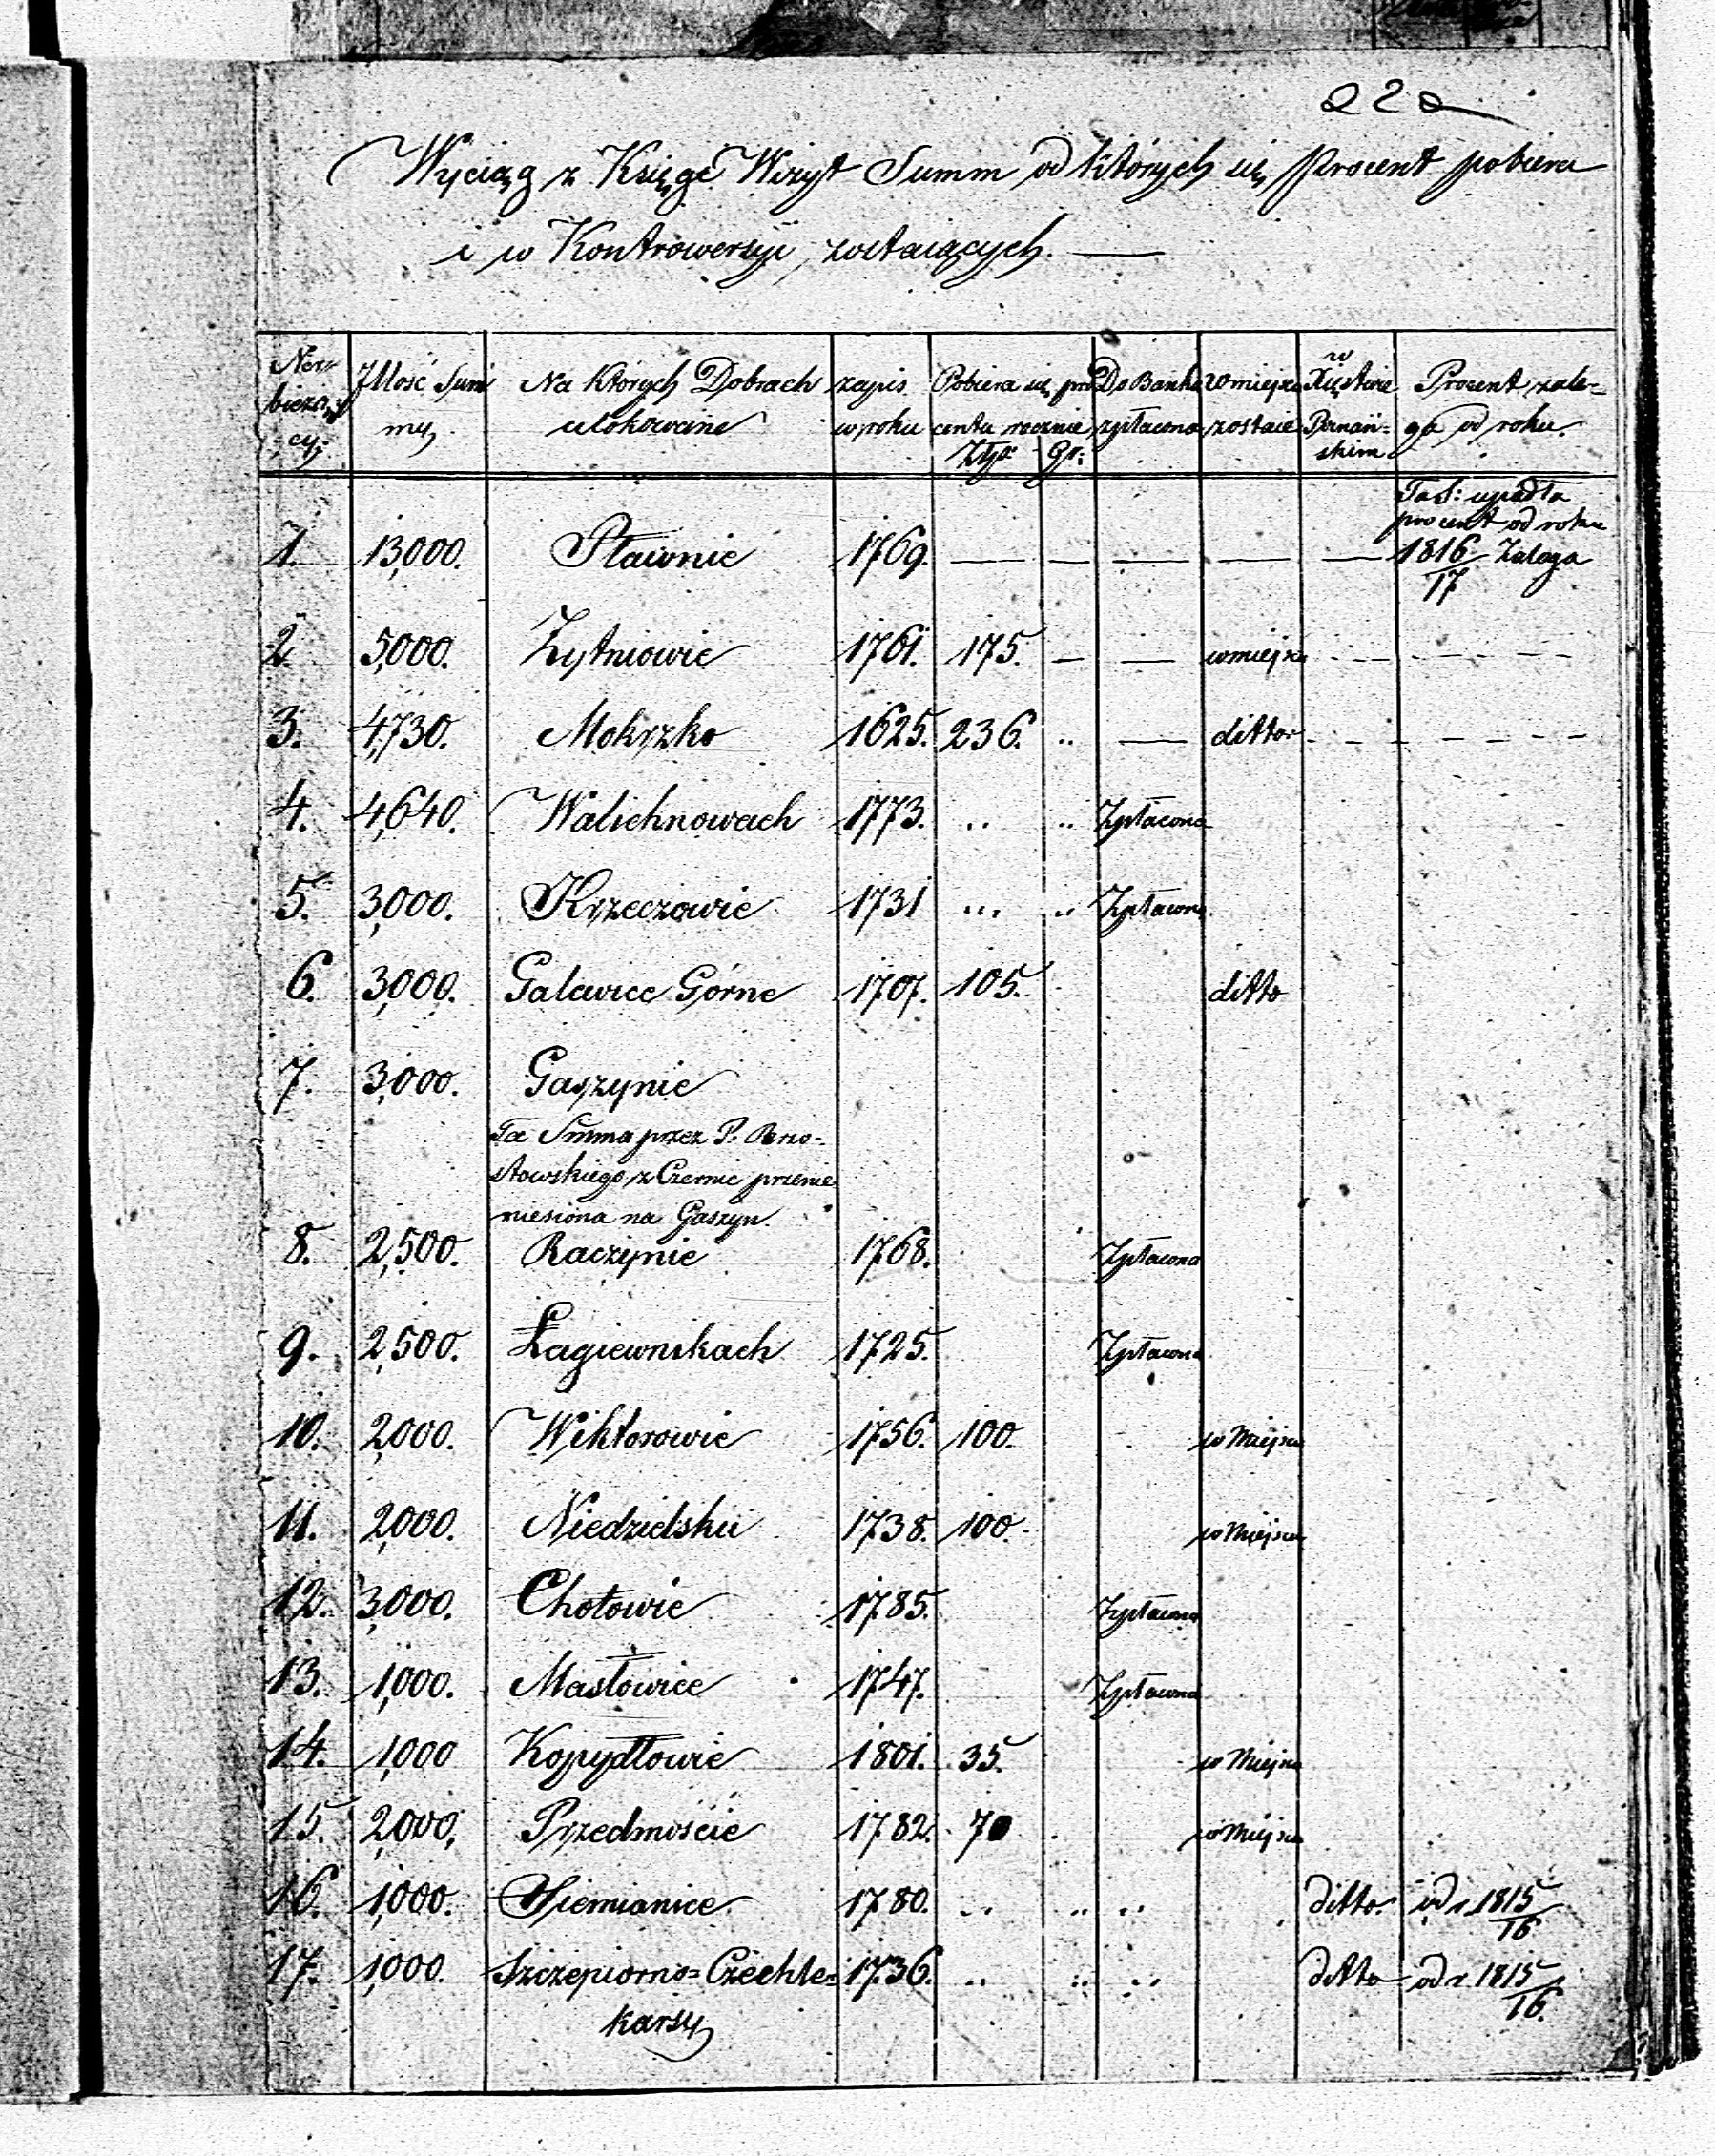 222
Wyciąg z Księgi Wizyt Summ od których się procent pobiera
i w Kontrowersyi zostaiących. —
Ner bieżą- cy. | Jllość Sum my | Na których Dobrach ulokowane | zapis w roku | Pobiera się pro centu rocznie Złp: Gr: | Do Banku zpłacona | w miejscu zostaie | w Xięstwie Poznań- skim | Procent zale- ga od roku.
Ta S: upadła
procent od roku
1. 13,000. Pławnie 1769. — — — — — 1816/17 Zalega
2. 5,000. Żytniowie 1761. 175. — — w miejscu - - - - - -
3. 4,730. Mokrzko 1625. 236. .. — ditto - - - - - -
4. 4,640. Walichnowach 1773. .. .. Zpłacona
5. 3,000. Krzeczowie 1731 ... .. Zpłacona
6. 3,000. Galewice Górne 1707. 105. ditto
7. 3,000. Gaszynie
Ta Summa przez P.
stowskiego z Czernic przenie
niesiona na Gaszyn.
8. 2,500. Raczynie 1768. Zpłacona
9. 2,500. Łagiewnikach 1725. Zpłacona
10. 2,000. Wiktorowie 1756. 100. w Miejscu
11. 2,000. Niedzielsku 1738. 100. w Miejscu
12. 3,000. Chotowie 1785. Zpłacona
13. 1,000. Masłowice 1747. Zpłacona
14. 1,000 Kopydłowie 1801. 35. w Miejscu
15. 2,000, Przedmoście 1782. 70 w Miejscu
16. 1,000. Siemianice 1780. .. .. .. ditto. od r. 1815/16
17. 1,000. Szczepiorno=Czechle= 1736. .. .. .. ditto od r. 1815/16.
karsy